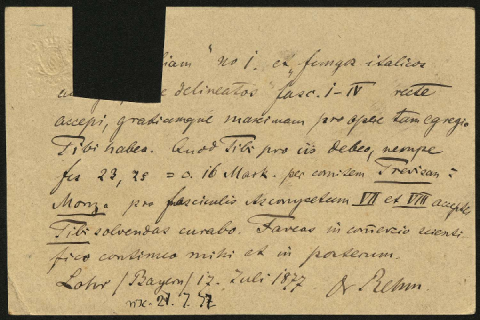 liam" no I. et "fungos italicos
delineatos" fasc. I–IV recte
accepi, gratiamque maximam pro opere tam egregio
Tibi habeo. Quod Tibi pro iis debeo, nempe
frs 23, 25 = o. 16 Mark. per comitem Trevisan =
Monz. pro fasciculis Ascomycetum VII et VIII acceptis
Tibi solvendas curabo. Faveas in comercio scienti-
fico continuo mihi et in posterum.
Lohr / Bayern / 17. Juli 1877 Dr Rehm.
21. 7. 77